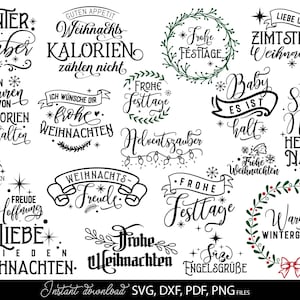 TER
GUTEN APPETIT
Weihnachts
KALORIEN
zählen nicht
Frohe
FESTTAGE
LIEBE
ZIMTSTE
Weihnac
ICH WÜNSCHE DIR
frohe
WEIHNACHTEN
FROHE
Festtage
Baby
ES IST
kalt
VON
ORIEN
alten
Adventszauber
Frohe
Weihnachten
WEIHNACHTS-
Freude
FROHE
Festtage
FREUDE
Hoffnung
LIEBE
IEDEN
HNACHTEN
Frohe
Weihnachten
Süße
ENGELSGRÜßE
Wa
WINTERG
Instant download SVG, DXF, PDF, PNG FILES